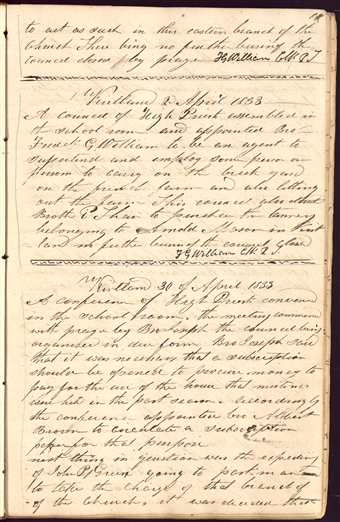 to act as such in this eastern branch of the
Church There bing no further busines the
council closed by prayer F G William C.W. P. T
Kirtland 2 April 1833
A council of High Priest assembled in
the school room and appointed Bro
Fredck G William to be an agent to
superintend and employ some person or
person to carry on the brick yard
on the french farm and also letting
out the farm This council also
to purchase the tannery
belonging to Arnold Mason in Kirt
land no further business the council closed
F G William C.W. P. T.
Kirtland 30 of April 1833
A conference of High Priest convened
in the school room. the meeting commen
with prayer by Bro Joseph the council being
organised in due form Bro Joseph said
that it was necessary that a subscription
should be opened to procure money to
pay for the use of the house that meetings
were held in the past season. accordingly
the conference appointed bro Albert
Brown to circulate a subscription
paper for that purpose
next thing in question was the expediency
of John P Green going to
to take the charge of that branch of
of the Church, it was decided that